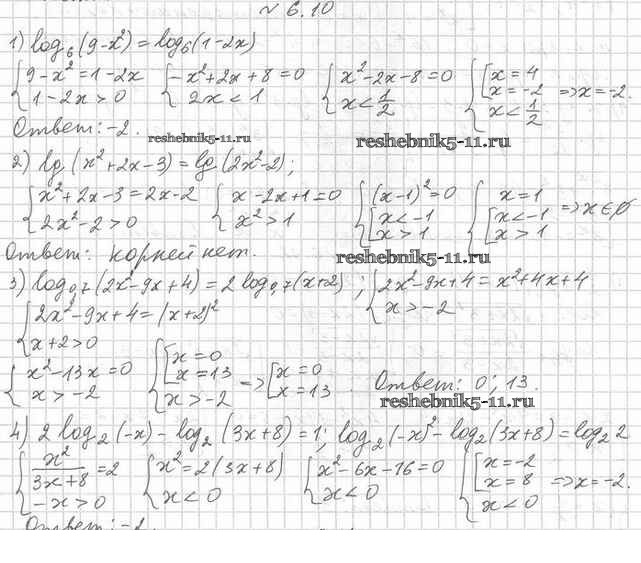 № 6.10
1) log₆(9-x²) = log₆(1-2x)
{9-x²=1-2x; 1-2x>0 {-x²+2x+8=0; 2x<1 {x²-2x-8=0; x<1/2 {[x=4; x=-2; x<1/2 => x=-2.
Ответ: -2.
reshebnik5-11.ru
reshebnik5-11.ru
2) lg(x²+2x-3) = lg(2x²-2);
{x²+2x-3=2x-2; 2x²-2>0 {x-2x+1=0; x²>1 {(x-1)²=0; [x<-1; x>1 {x=1; [x<-1; x>1 => x∈∅
Ответ: корней нет.
reshebnik5-11.ru
3) log₀,₇(2x²-9x+4) = 2log₀,₇(x+2); {2x²-9x+4=x²+4x+4; x>-2
{2x²-9x+4=(x+2)²; x+2>0
{x²-13x=0; x>-2 {[x=0; x=13; x>-2 => [x=0; x=13. Ответ: 0; 13.
reshebnik5-11.ru
4) 2log₂(-x)-log₂(3x+8)=1; log₂(-x)²-log₂(3x+8)=log₂2
{x²/(3x+8)=2; -x>0 {x²=2(3x+8); x<0 {x²-6x-16=0; x<0 {[x=-2; x=8; x<0 => x=-2.
Ответ: -2.